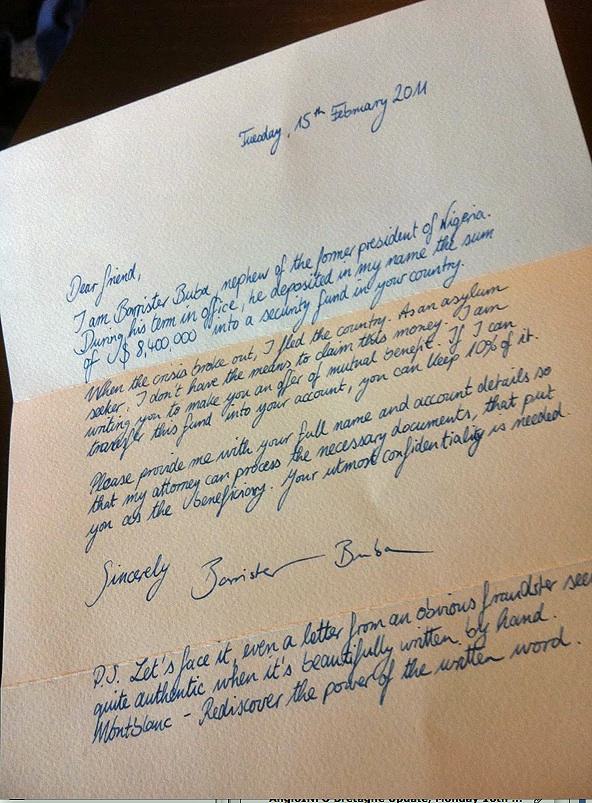 Tuesday, 15th February 2011
Dear friend,
I am Barrister Buba, nephew of the former president of Nigeria.
During his term in office, he deposited in my name the sum
of $ 8,400,000 into a security fund in your country.
When the crisis broke out, I fled the country. As an asylum
seeker, I don't have the means to claim this money. I am
writing you to make you an offer of mutual benefit. If I can
transfer this fund into your account, you can keep 10% of it.
Please provide me with your full name and account details so
that my attorney can process the necessary documents, that put
you as the beneficiary. Your utmost confidentiality is needed.
Sincerely Barrister Buba
P.S. Let's face it, even a letter from an obvious fraudster see
quite authentic when it's beautifully written by hand.
Montblanc - Rediscover the power of the written word.